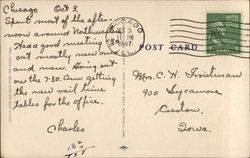 Chicago Oct 3,
Spent most of the after-
noon around Northwestern.
Had a good meeting
out mostly new ones
and men. Going out
on the 7:30. Am getting
the new rail time
tables for the office.
Charles
CHICAGO
OCT 3
PM
1947
POST CARD
Mrs. C. W. Troutman
900 Sycamore
Creston,
Iowa.